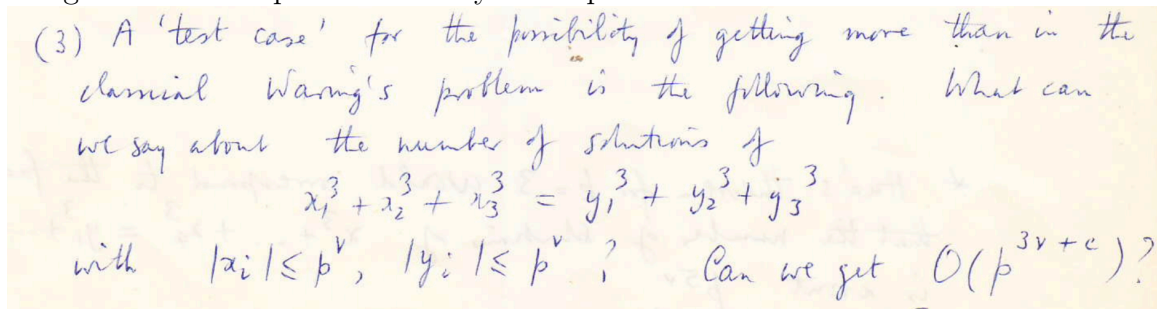 (3) A 'test case' for the possibility of getting more than in the
classical Waring's problem is the following. What can
we say about the number of solutions of
x₁³ + x₂³ + x₃³ = y₁³ + y₂³ + y₃³
with |xᵢ| ≤ p^ν, |yᵢ| ≤ p^ν ? Can we get O(p^{3ν+ε})?